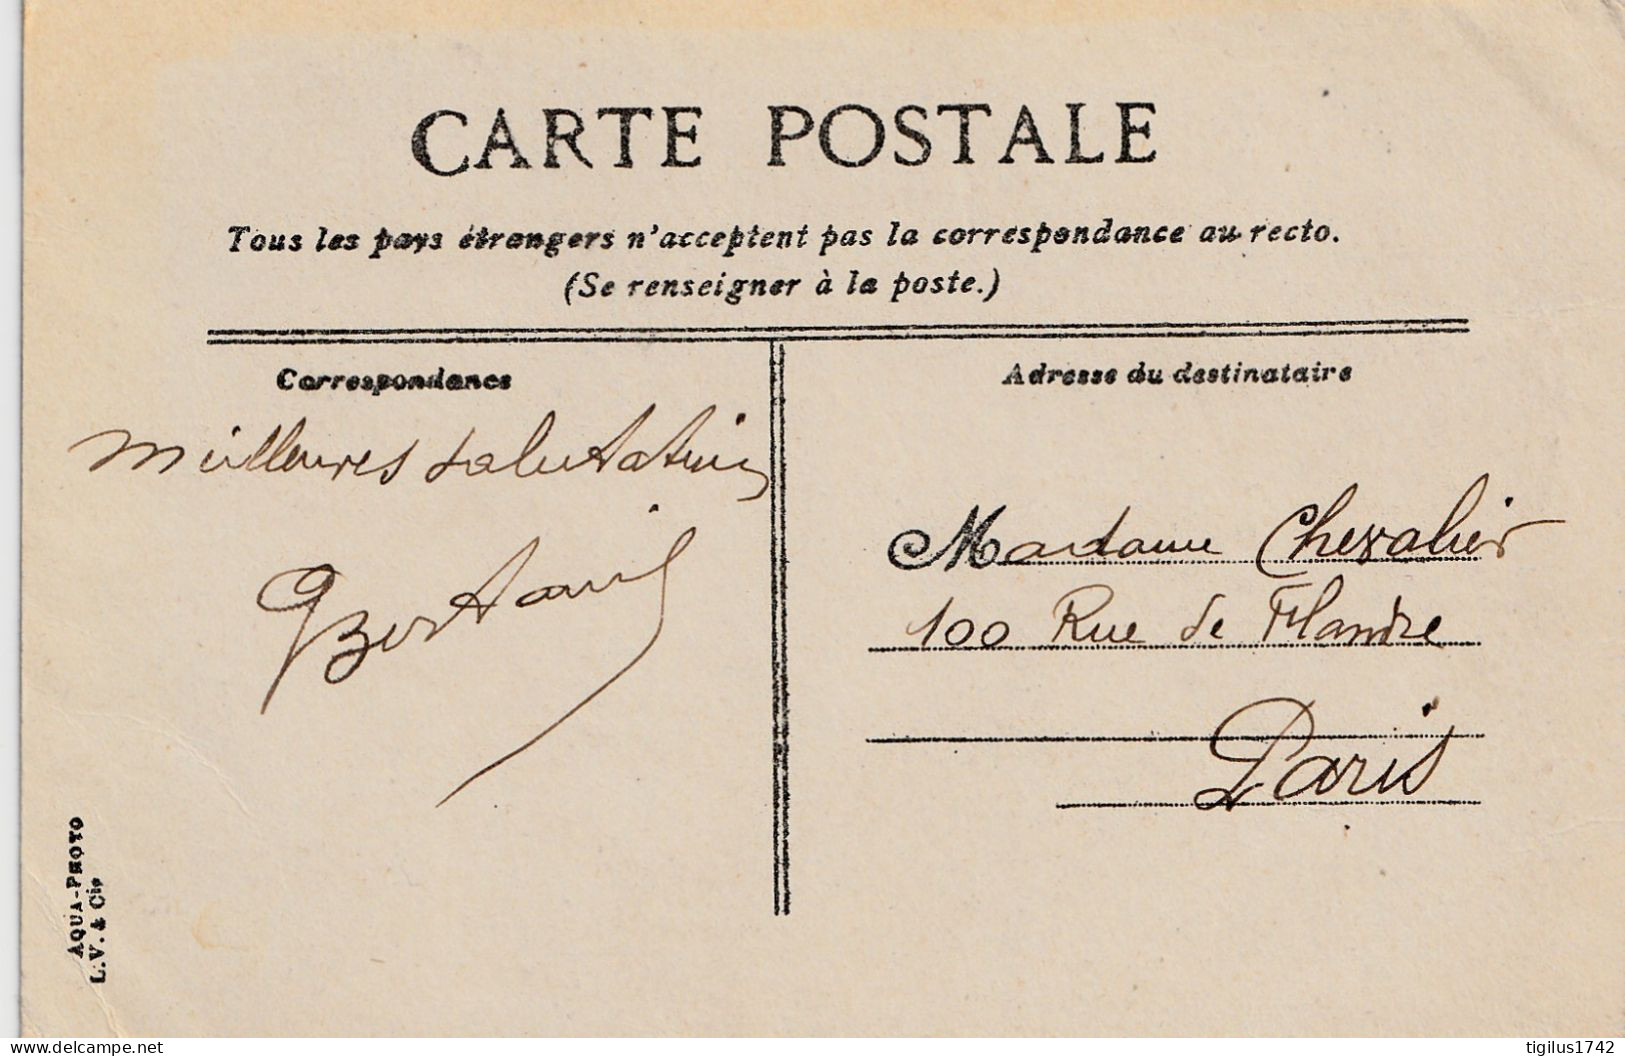 CARTE POSTALE
Tous les pays étrangers n'acceptent pas la correspondance au recto.
(Se renseigner à la poste.)
Correspondance
Adresse du destinataire
Meilleures salutations
Madame Chevalier
100 Rue de Flandre
Paris
AQUA-PHOTO
L.V. & Cie
www.delcampe.net
tigilus1742